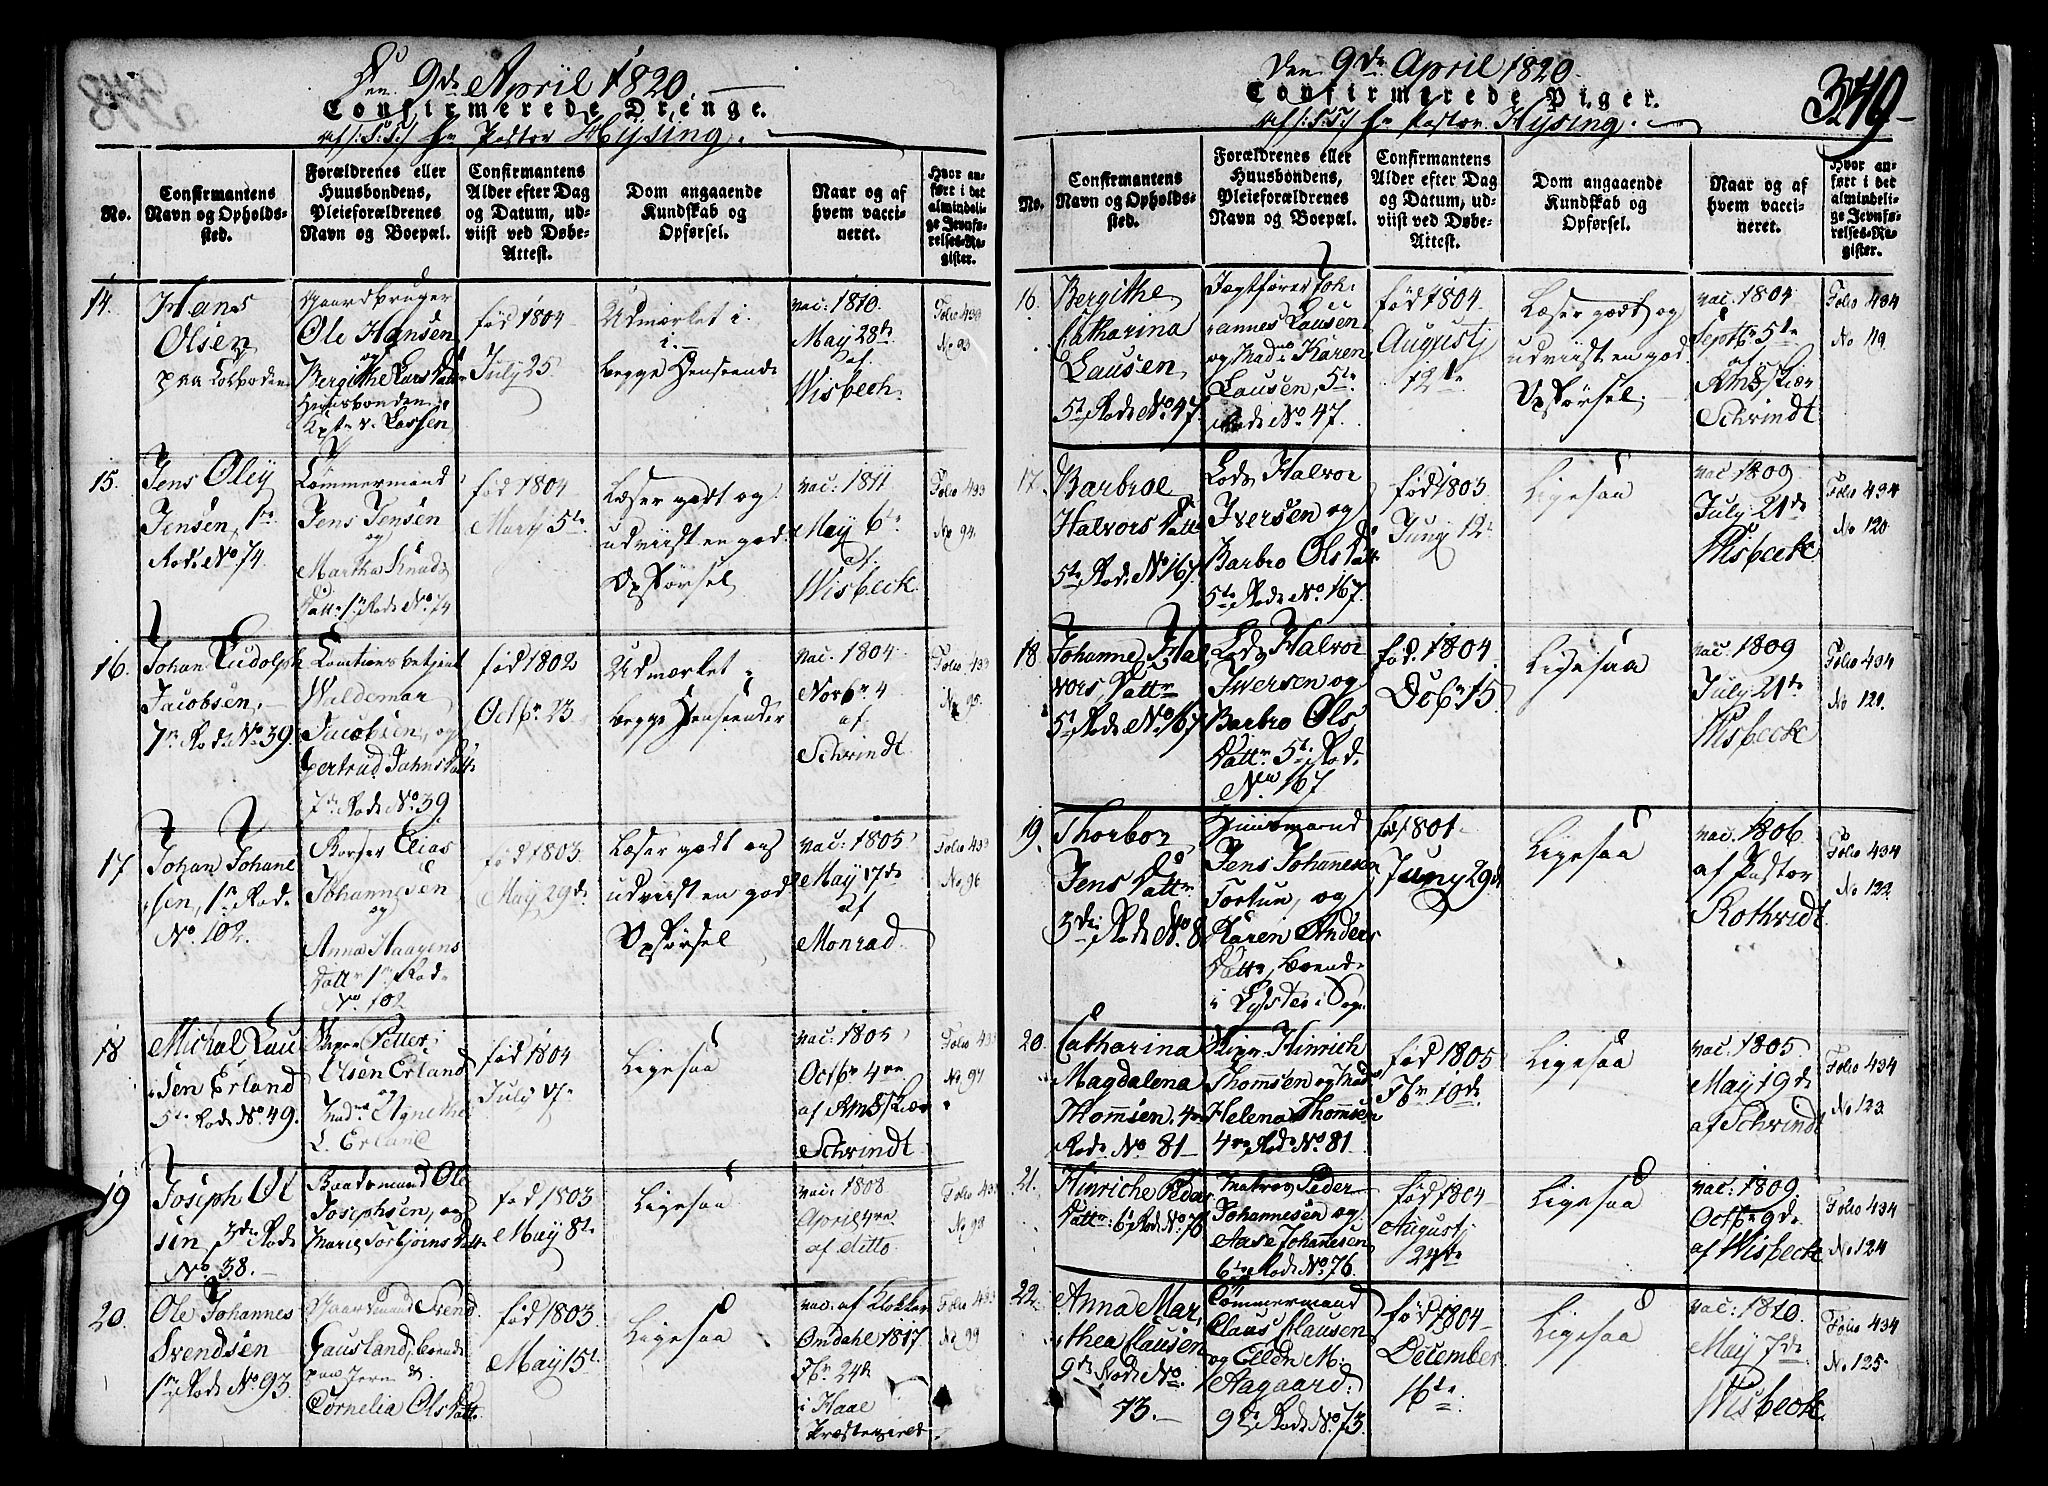 Den 9de April 1820.
Confirmerede Drenge.
af S: T: Hr Pastor Hysing.
No.
Confirmantens Navn og Opholdssted.
Forældrenes eller Huusbondens, Pleieforældrenes Navn og Boepæl.
Confirmantens Alder efter Dag og Datum, udviist ved Døbe-Attest.
Dom angaaende Kundskab og Opførsel.
Naar og af hvem vaccineret.
Hvor anført i det almindelige Jevnførelses-Register.
14.
Hans
Olsen
paa
Gaardbruger
Ole Hansen
og
Bergithe Lars Datt
Huusbonden
Capt. v. Lassen
fød 1804
July 25.
Udmærket i
begge Henseende
vac: 1810.
May 28de
af
Wisbech.
Folio 433
No 93
15.
Jens Oley
Jensen, 1te
Rode No 74.
Tømmermand
Jens Jensen
og
Martha Knuds
Datter 1te Rode No 74
fød 1804
Marty 5te
Læser godt og
udviist en god
Opførsel
vac: 1811
May 6te
af
Wisbeck
Folio 433
No 94.
16.
Johan Rudolph
Jacobsen,
7de Rode No 39.
Waldemar
Jacobsen, og
Gertrud Jahns Datt
7de Rode No 39.
fød 1802
Octbr 23
Udmærket i
begge Henseender
vac. 1804
Novbr 4
af
Schvindt
Folio 433
No 95.
17
Johan Johane
sen, 1te Rode
No. 102.
Elias
Johannesen
og
Anna Haagens
Datter 1te Rode
No 102
fød 1803.
May 29de
Læser godt og
udviist en god
Opførsel
vac: 1805
May 17de
af
Monrad.
Folio 433
No 96
18
Michal Lau
sen Erland
5te Rode No 49.
Petter
Olsen Erland
og
Mad. Agnethe
L. Erland
fød 1804
July 17
Ligesaa
vac: 1805
Octbr 4re
af
Schvindt
Folio 433
No 97
19
Joseph Ol
sen, 3die Rode
No. 38.
Baadsmand Ole
Josephsen, og
Marie Torbjørns Datt
fød 1803
May 8de
Ligesaa
vac: 1808
April 4re
af ditto.
Folio 433
No 98
20.
Ole Johannes
Svendsen
1te Rode No 93.
Gaardmand Svend
Gausland, boende
paa Jern &
Cornelia Ols Datt.
fød 1803.
May 15de
Ligesaa
vac. af Klokker
Omdahl 1817
7br 24de
i Haae
Præstegield
Folio 433
No 99
Den 9de April 1820.
349
Confirmerede Piger.
af S: T: Hr Pastor Hysing.
No.
Confirmantens Navn og Opholdssted.
Forældrenes eller Huusbondens, Pleieforældrenes Navn og Boepæl.
Confirmantens Alder efter Dag og Datum, udviist ved Døbe-Attest.
Dom angaaende Kundskab og Opførsel.
Naar og af hvem vaccineret.
Hvor anført i det almindelige Jevnførelses-Register.
16.
Bergithe
Catharina
Lausen
5te Rode No. 47.
Jagtfører Joh-
annes Lausen
og Mad. Karen
Lausen, 5te
Rode No. 47.
fød 1804
Augusty
12te
Læser godt og
udviist en god
Opførsel.
vac: 1804
Septbr 5te
af
Schvindt
Folio 434
No 119.
17.
Barbroe
Halvors Datter
5te Rode No 167.
Lods Halvor
Iversen og
Barbro Ols Datt
5te Rode No. 167.
fød 1803
Juny 12te
Ligesaa
vac 1809
July 21de
Wisbeck
Folio 434
No 120
18.
Johanne Hal
vors Datter
5te Rode No. 167
Lods Halvor
Iwersen og
Barbro Ols
Datter 5te Rode
No 167
fød. 1804.
Octbr 15
Ligesaa
vac: 1809
July 21de
Wisbeck
Folio 434
No 121.
19.
Thorbor
Jens Datter
3die Rode No. 8
Huusmand
Jens Johannesen
Fortun, og
Karen Anders
Datter, boende
i Lyster i Sogn
fød 1801
Juny 29de
Ligesaa
vac. 1806.
af Pastor
Rothvidt
Folio 434
No 122.
20.
Catharina
Magdalena
Thomsen. 4re
Rode No 81
Hinrich
Thomsen og Mad
Helena Thomsen
4re Rode No. 81
fød 1805
7br 10de
Ligesaa
vac: 1805.
May 19de
af Schvindt
Folio 434
No 123.
21.
Hinriche Peder
Datter: 6te Rode No. 76
Matros Peder
Johannesen og
Aase Johannesen
6te Rode No. 76.
fød 1804
Augusty
24de
Ligesaa
vac: 1809
Octbr 9de
af Wisbeck
Folio 434
No 124
22
Anna Mar
thea Clausen
9de Rode No.
73.
Tømmermand
Claus Clausen
og Ellen M:
Aagaard:
9de Rode No. 73.
fød 1804
December
16te
Ligesaa
vac: 1810.
May 7de
Wisbeck.
Folio 434
No 125